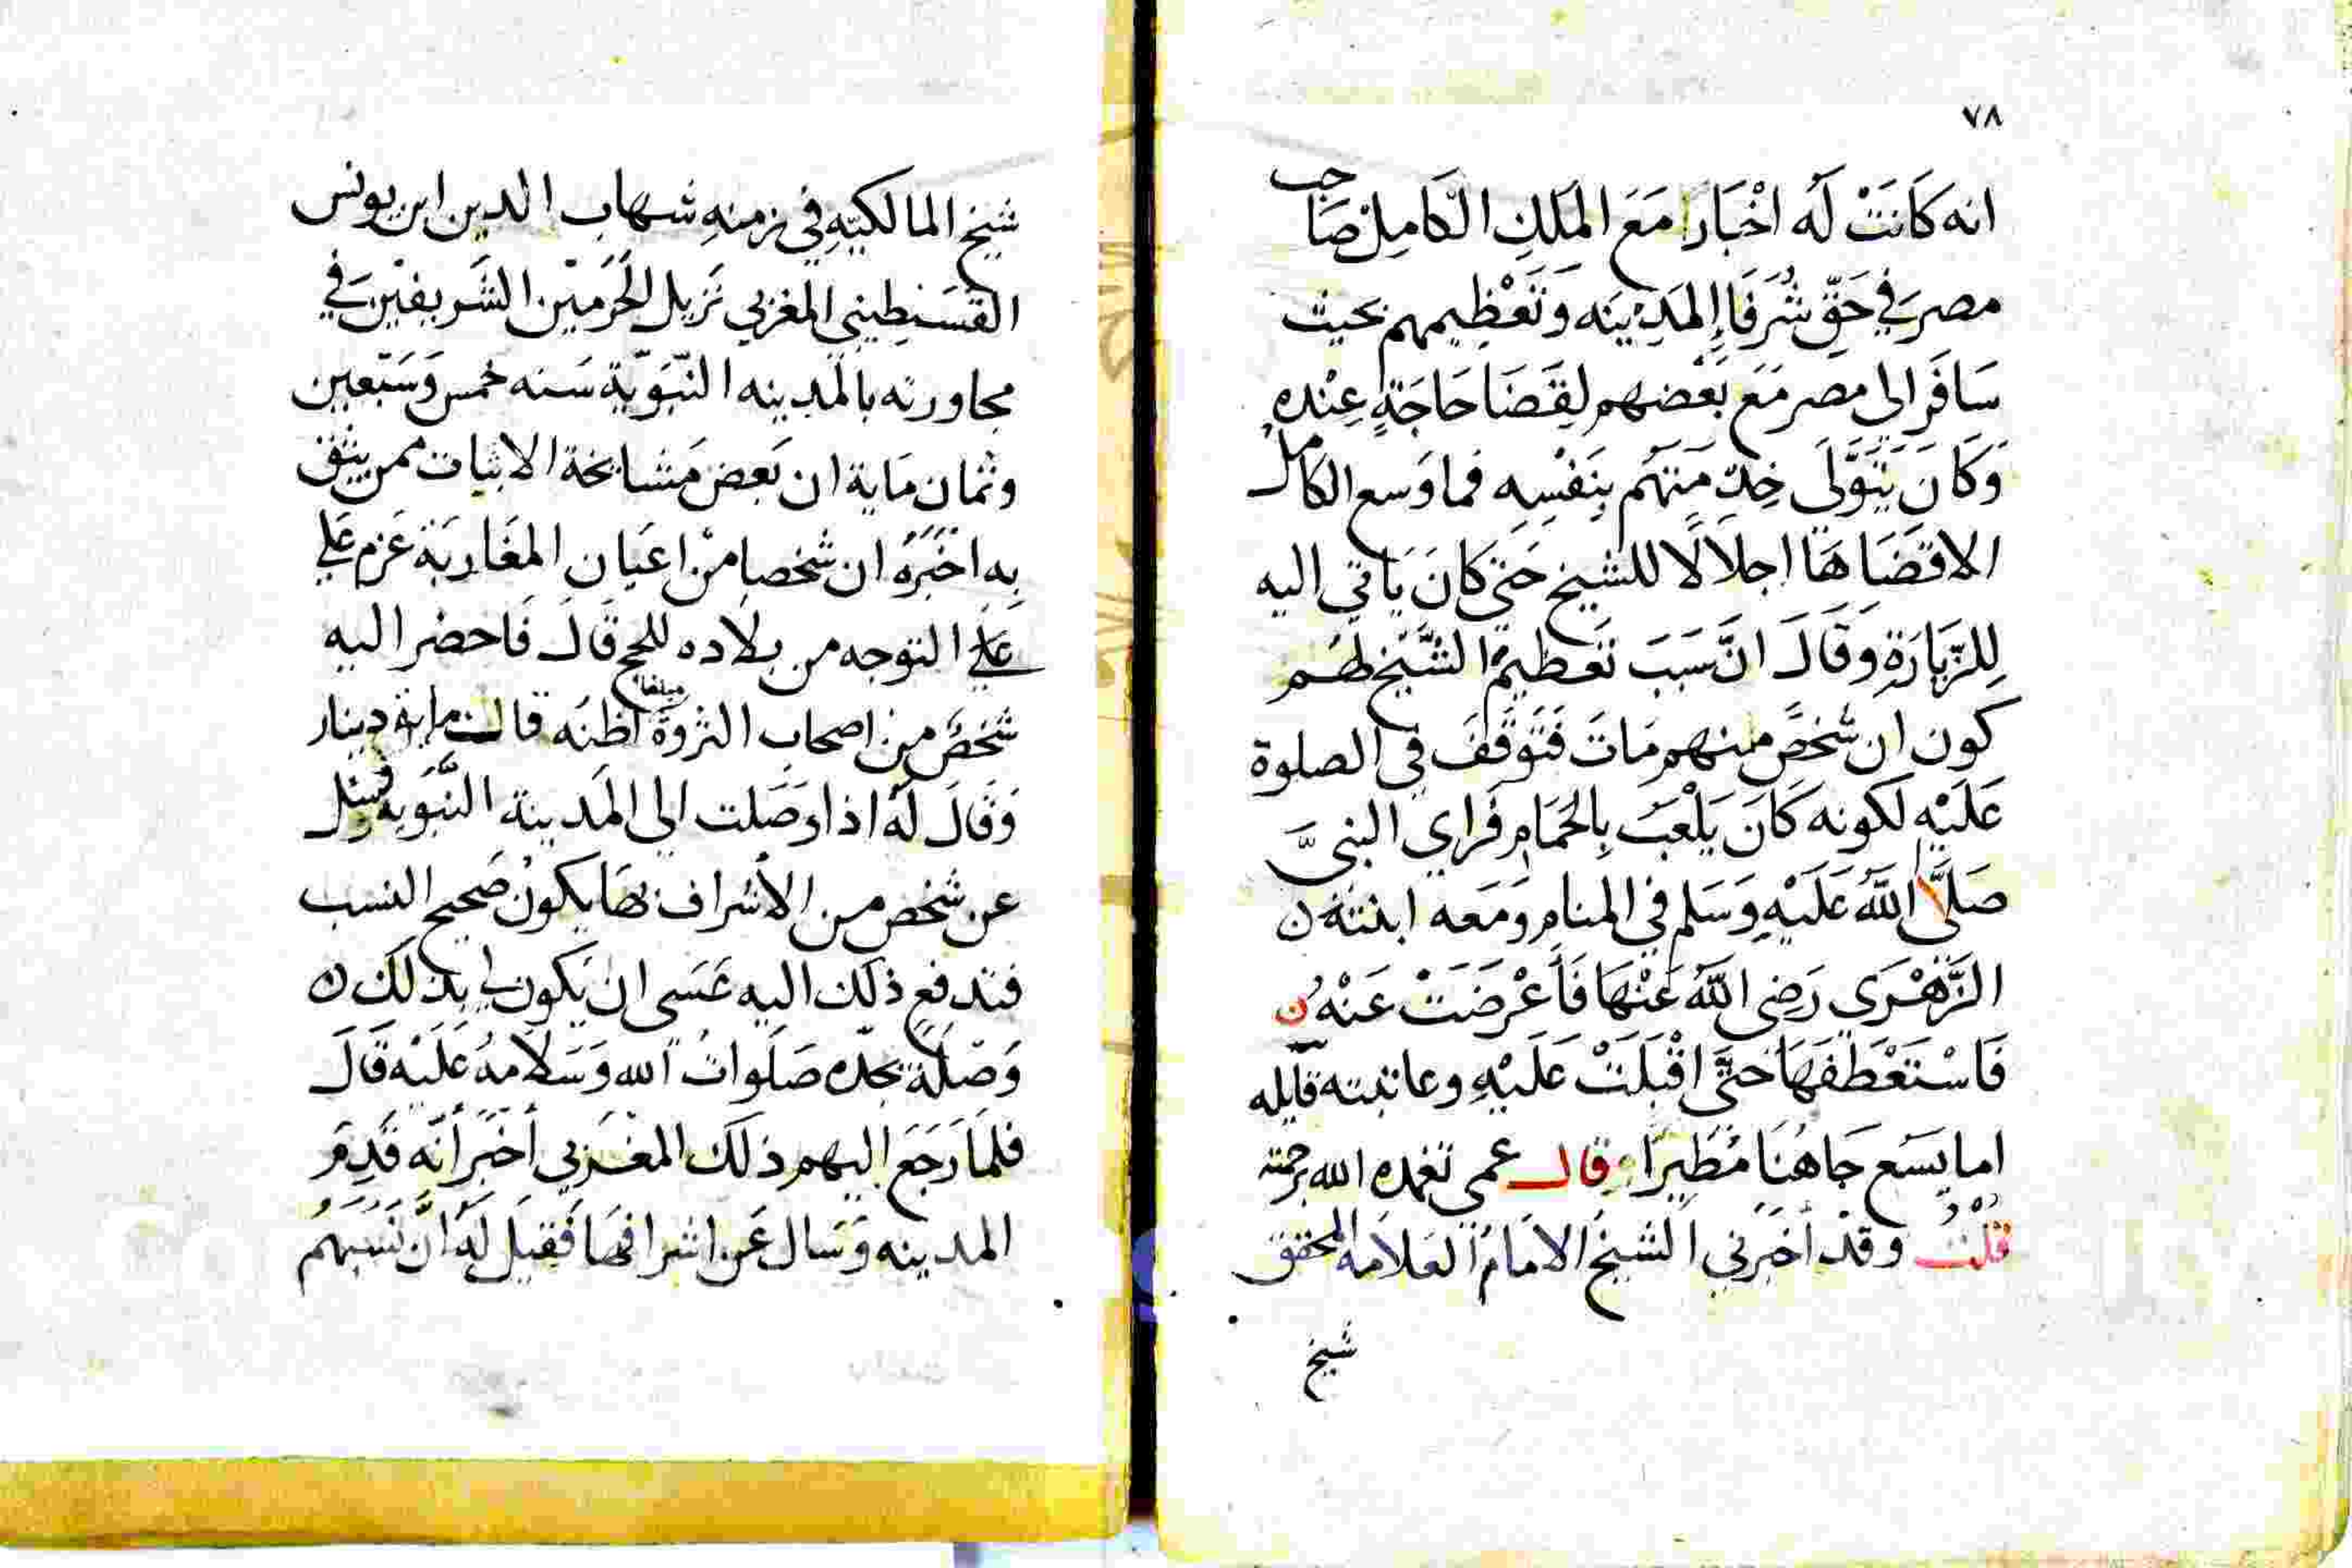 ٧٨
انه كَانَتْ لَه اخْبَارًا مَعَ المَلِكِ الكَامِل صَاحب
مصرَ في حَقِّ شُرَفَاءِ المَدِينَه وَتَعْظِيمهم بحيث
سَافَر الى مصر مَعَ بَعْضهم لِقَضَا حَاجَةٍ عِنْده
وَكَانَ يَتَوَلَّى خِدْمَتَهُم بِنَفْسِه فما وَسع الكامل
الا قَضَاهَا اجلالًا للشيخ حَتى كانَ يَاتي اليه
لِلزّيَارَةِ وَقَالَ انَّ سَبَبَ تَعظيم الشَّيْخ لهُم
كون ان شخصً منهم مَاتَ فَتَوَقَّفَ في الصلوة
عَلَيْه لكونه كَانَ يَلْعَبُ بِالحَمَام فَراى النبىَّ
صَلَّا اللَّهُ عَلَيْهِ وَسَلم في المنام وَمَعَه ابنته ن
الزَّهْرَى رَضِى اللَّهُ عَنْهَا فَأعْرَضَتْ عَنْهُ ن
فَاسْتَعْطَفَهَا حَتَّى اقْبَلَتْ عَلَيْهِ وعاتبته قايله
اما يسَع جَاهُنَا مُطَيرًا قال عمى تغمده الله برحمته
قلْتُ وقدْ أخبَرني الشيخُ الامَامُ العَلامه المحقق
شيخ
شيخ المالكيّهِ في زمنهِ شهاب الدين ابن يونس
القسَنطِيني المغربي نَزيل الحَرَمَيْن الشَريفيْن في
مجاورته بالمدينه النّبَويّة سَنه خمس وَسَبْعين
وثمان مَاية ان بَعض مَشايخة الاثبات ممن يثق
بِه اخْبَرَهُ ان شخصا منْ اعيَان المغَاربَة عَزم عَلي
عَلي التوجه من بلاده للحج قالَ فَاحضر اليه
شخصٌ من اصحاب الثروة مبلغا اظنُه قال ماية دينار
وَقَالَ لَهُ اذا وَصَلت الى المَدينة النّبَويه فسل
عن شخص من الأشراف بهَا يكونُ صَحيح النسب
فتدفع ذلك اليه عَسَى ان يَكون لى بذلك ن
وَصْلَة بجدّه صَلَواتُ الله وَسَلامهُ عَلَيْه قَالَ
فلمَا رَجَعَ اليهم ذلكَ المغربي أخبَر أنَّه قَدِمَ
المدينه وَسَال عَن اشرافهَا فَقيلَ لَهُ انَّ نَسَبَهُم